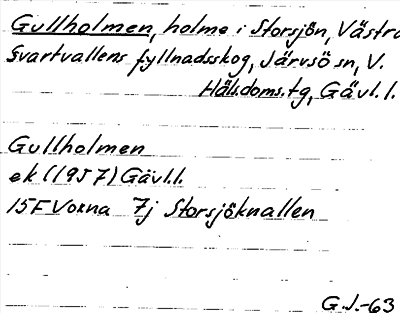 Gullholmen, holme i Storsjön, Västra
Svartvallens fyllnadsskog, Järvsö sn, V.
Häls.doms.tg, Gävl.l.
Gullholmen
ek (1957) Gävl.l.
15F Voxna 7j Storsjöknallen
G.J.-63